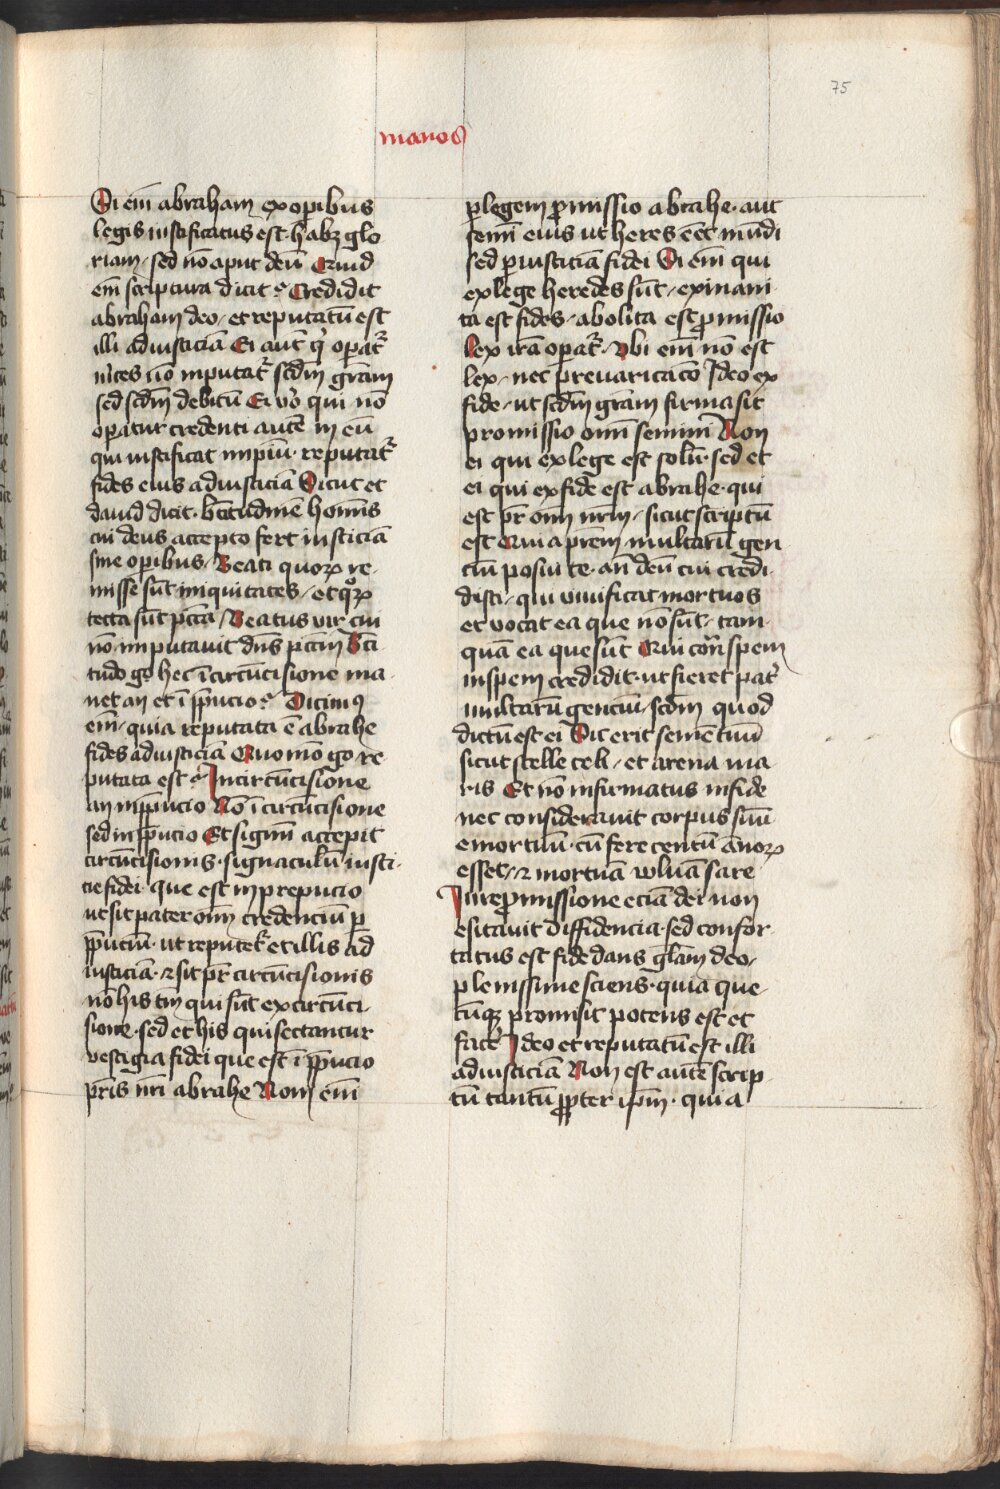 75
manos
Si em̄ abraham ex op̲ibus
legis iustificatus est habꝫ glo
riam / sed nō aput deū Quid
em̄ scriptura dicit ? Credidit
abraham deo / et reputatū est
illi ad iusticiā Ei aut̄ q̇ operat᷑
m̄ces nō inputat᷑ scd̄m grām
sed scd̄m debitū Ei vo̊ qui nō
op̲atur credenti autē in eū
qui iustificat impiū · reputat᷑
fides eius ad iusticiā Sicut et
dauid dicit · bt̄itudinē homīs
cui deus accepto fert iusticiā
sine op̲ibus / Beati quoꝝ re-
misse sūt iniquitates / et qͦꝝ
tecta sūt pctā / Beatus vir cui
nō imputauit dn̄s pctm̄ Bt̄i
tudo gͦ hec ī circūcisione ma-
net an et ī p̄pucio ? Dicimꝰ
em̄ / quia reputata ē abrahe
fides ad iusticiā Quomō gͦ re
putata est ? In circūcisione
an in p̄pucio Nō ī circūcisione
sed in p̄pucio Et signū accepit
circūcisionis · signaculū iusti-
cie fidei · que est in prepucio
ut sit pater oīm credenciū p̲
p̄puciū · ut reputet᷑ et illis ad
iusticiā · ⁊ sit pr̄ circūcisionis
nō his tm̄ qui sūt ex circūci
sione · sed et his qui sectantur
vestigia fidei que est ī p̄pucio
pr̄is nr̄i abrahe Non em̄
p̲ legem p̲missio abrahe · aut
semī eius ut heres eēt mūdi
sed p̲ iusticiā fidei Si em̄ qui
ex lege heredes sūt / exinani
ta est fides / abolita est p̲missio
Lex irā operat᷑ · Vbi em̄ nō est
lex / nec preuaricacō Ideo ex
fide / ut scd̄m grām firma sit
promissio om̄i semini Non
ei qui ex lege est solū · sed et
ei qui ex fide est abrahe · qui
est pr̄ oīm nr̄m / sicut scriptū
est Quia prēm multarū gen
ciū posui te · an̄ deū cui credi-
disti / qui viuificat mortuos
et vocat ea que nō sūt / tam-
quā ea que sūt Qui cont̄ spem
in spem credidit · ut fieret pat᷑
multarū genciū / scd̄m quod
dictū est ei Sic erit semē tuū
sicut stelle celi / et arena ma
ris Et nō infirmatus in fide
nec considerauit corpus suū
emortuū · cū fere centū ānoꝝ
esset / ⁊ mortuā wluā sare
In repromissione eciā dei non
esitauit diffidencia · sed confor-
tatus est fide dans gl̄am deo /
plenissime sciens · quia que-
cūqꝫ promisit potens est et
face᷑ Ideo et reputatū est illi
ad iusticiā Non est autē scrip-
tū tantū p̲pter ip̄m · quia